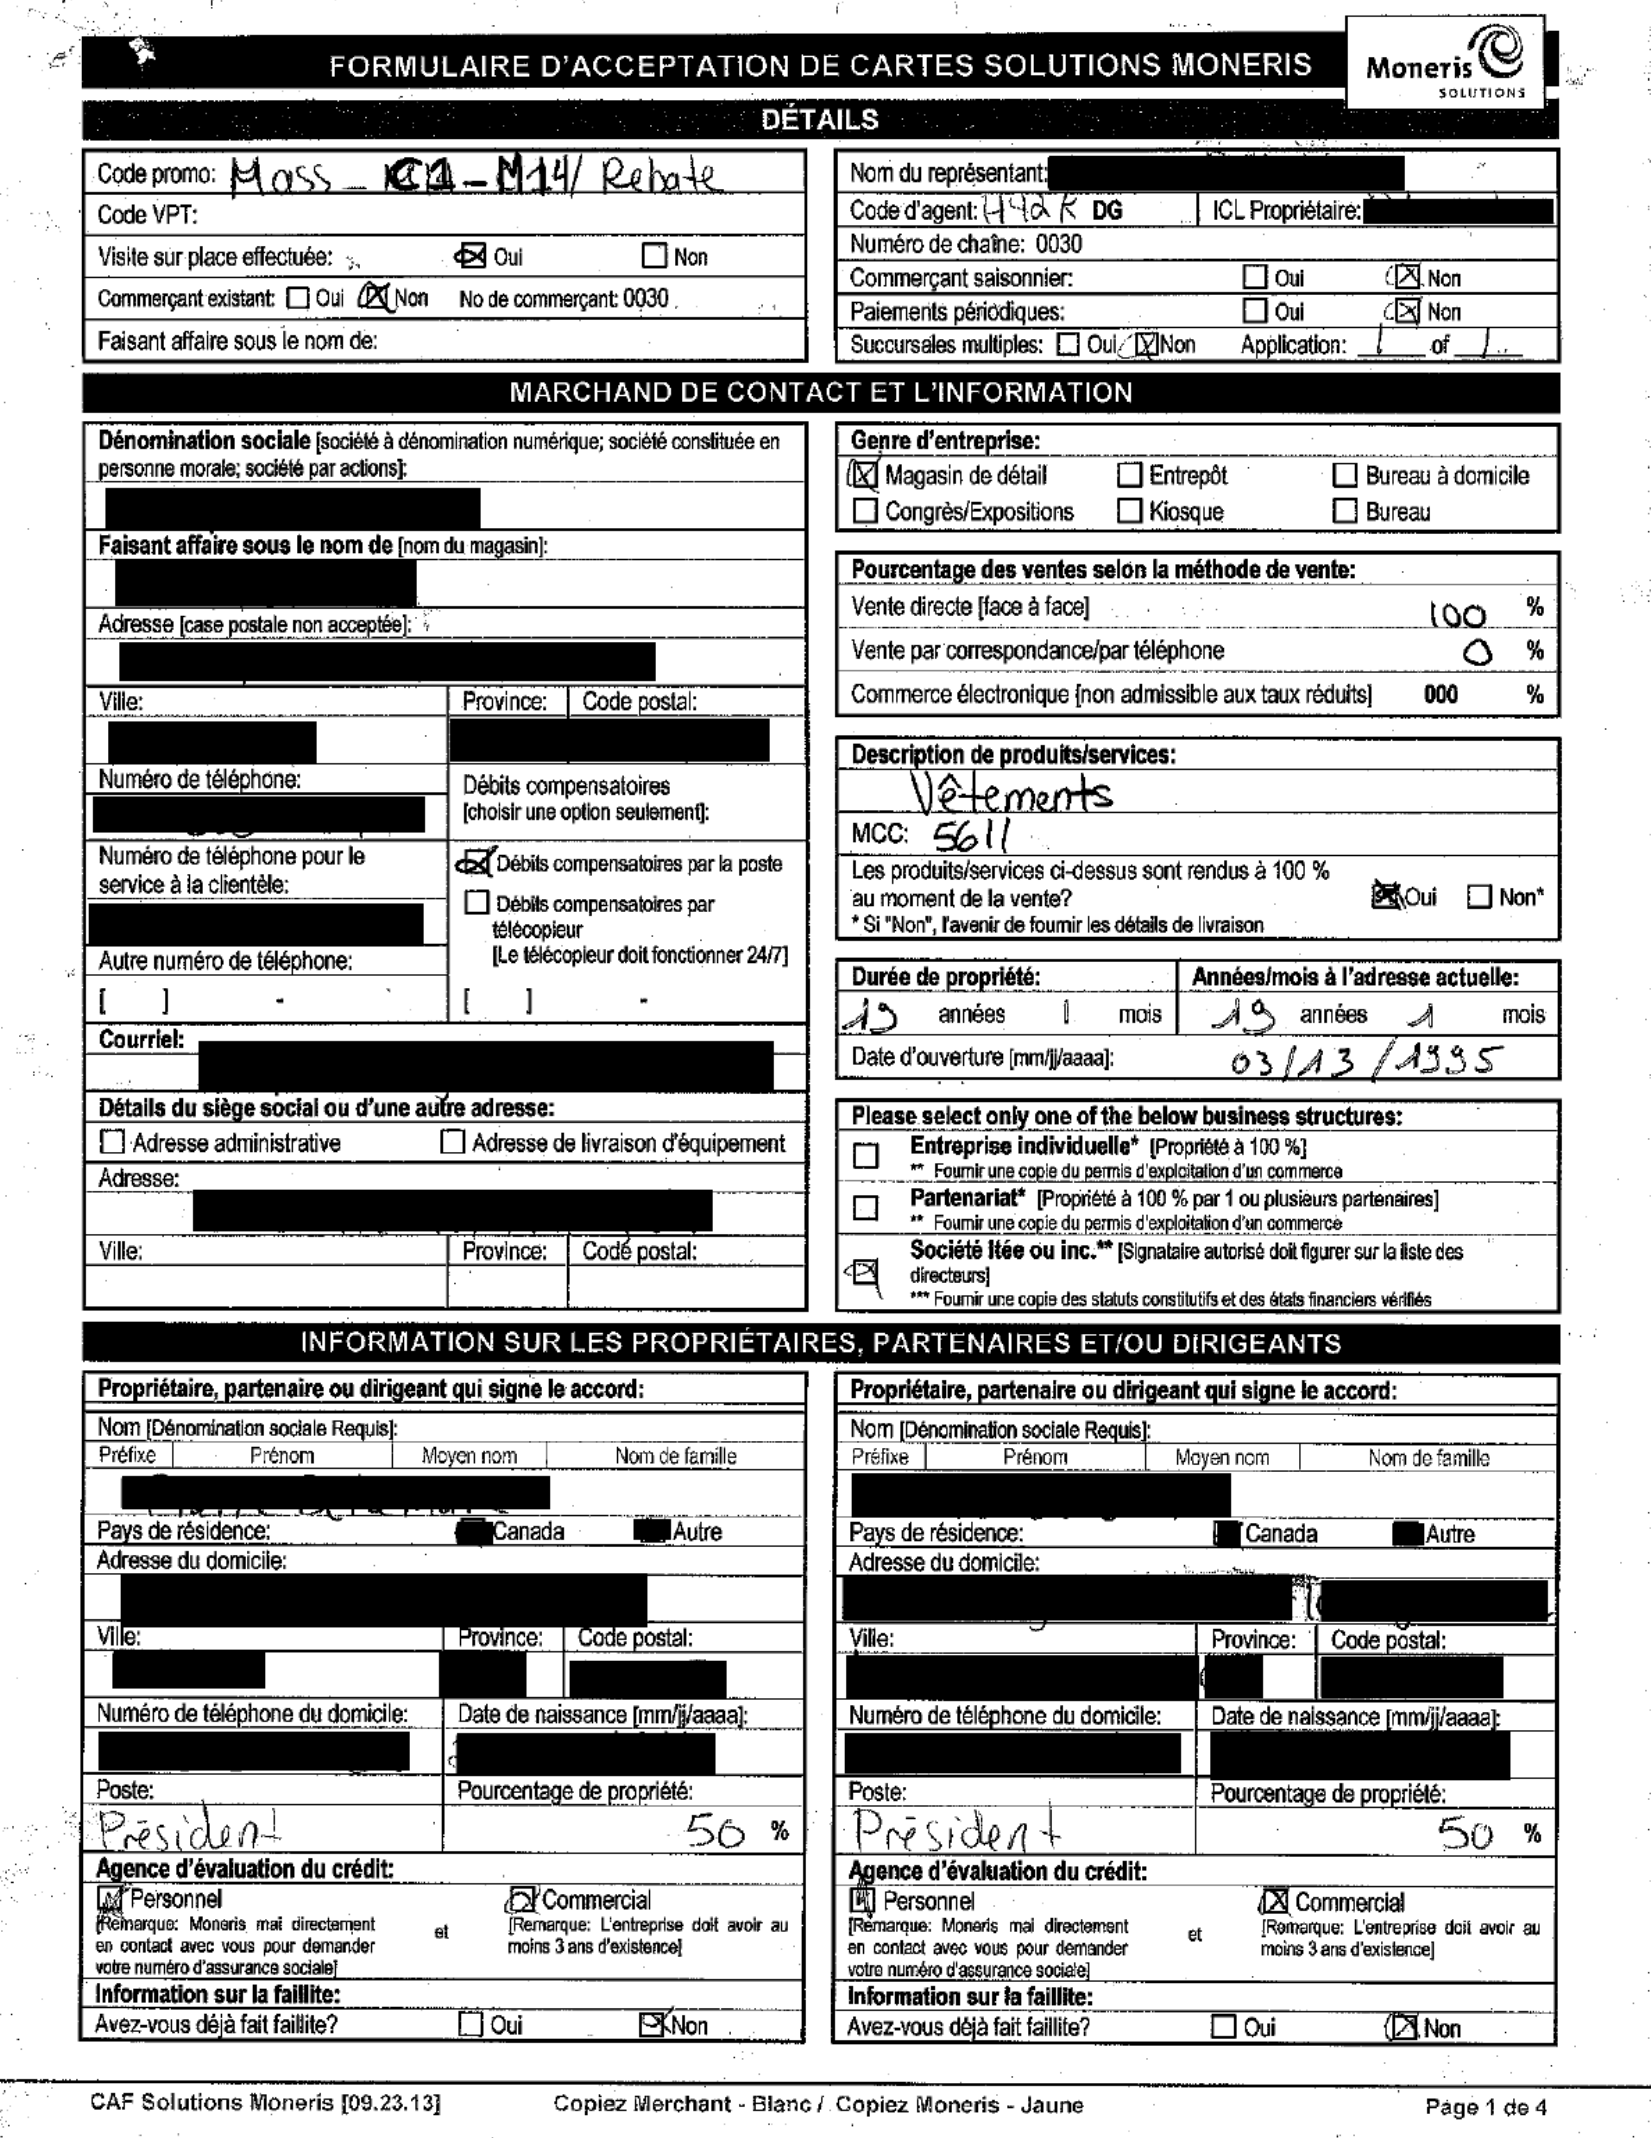 FORMULAIRE D'ACCEPTATION DE CARTES SOLUTIONS MONERIS
Moneris
SOLUTIONS
DÉTAILS
Code promo: Mass - - M14/ Rebate
Code VPT:
Visite sur place effectuée: Oui Non
Commerçant existant: Oui Non No de commerçant: 0030
Faisant affaire sous le nom de:
Nom du représentant:
Code d'agent: H42K DG ICL Propriétaire:
Numéro de chaîne: 0030
Commerçant saisonnier: Oui Non
Paiements périodiques: Oui Non
Succursales multiples: Oui Non Application: 1 of 1
MARCHAND DE CONTACT ET L'INFORMATION
Dénomination sociale [société à dénomination numérique; société constituée en
personne morale; société par actions]:
Faisant affaire sous le nom de [nom du magasin]:
Adresse [case postale non acceptée]:
Ville: Province: Code postal:
Numéro de téléphone:
Débits compensatoires
[choisir une option seulement]:
Numéro de téléphone pour le
service à la clientèle:
Débits compensatoires par la poste
Débits compensatoires par
télécopieur
[Le télécopieur doit fonctionner 24/7]
Autre numéro de téléphone:
[ ] - [ ] -
Courriel:
Détails du siège social ou d'une autre adresse:
Adresse administrative Adresse de livraison d'équipement
Adresse:
Ville: Province: Code postal:
Genre d'entreprise:
Magasin de détail Entrepôt Bureau à domicile
Congrès/Expositions Kiosque Bureau
Pourcentage des ventes selon la méthode de vente:
Vente directe [face à face] 100 %
Vente par correspondance/par téléphone 0 %
Commerce électronique [non admissible aux taux réduits] 000 %
Description de produits/services:
Vêtements
MCC: 5611
Les produits/services ci-dessus sont rendus à 100 %
au moment de la vente? Oui Non*
* Si "Non", l'avenir de fournir les détails de livraison
Durée de propriété: Années/mois à l'adresse actuelle:
19 années 1 mois 19 années 1 mois
Date d'ouverture [mm/jj/aaaa]: 03/13/1995
Please select only one of the below business structures:
Entreprise individuelle* [Propriété à 100 %]
** Fournir une copie du permis d'exploitation d'un commerce
Partenariat* [Propriété à 100 % par 1 ou plusieurs partenaires]
** Fournir une copie du permis d'exploitation d'un commerce
Société ltée ou inc.** [Signataire autorisé doit figurer sur la liste des
directeurs]
*** Fournir une copie des statuts constitutifs et des états financiers vérifiés
INFORMATION SUR LES PROPRIÉTAIRES, PARTENAIRES ET/OU DIRIGEANTS
Propriétaire, partenaire ou dirigeant qui signe le accord:
Nom [Dénomination sociale Requis]:
Préfixe Prénom Moyen nom Nom de famille
Pays de résidence: Canada Autre
Adresse du domicile:
Ville: Province: Code postal:
Numéro de téléphone du domicile: Date de naissance [mm/jj/aaaa]:
Poste: Pourcentage de propriété:
Président 50 %
Agence d'évaluation du crédit:
Personnel Commercial
[Remarque: Moneris mai directement
en contact avec vous pour demander
votre numéro d'assurance sociale]
et
[Remarque: L'entreprise doit avoir au
moins 3 ans d'existence]
Information sur la faillite:
Avez-vous déjà fait faillite? Oui Non
Propriétaire, partenaire ou dirigeant qui signe le accord:
Nom [Dénomination sociale Requis]:
Préfixe Prénom Moyen nom Nom de famille
Pays de résidence: Canada Autre
Adresse du domicile:
Ville: Province: Code postal:
Numéro de téléphone du domicile: Date de naissance [mm/jj/aaaa]:
Poste: Pourcentage de propriété:
Président 50 %
Agence d'évaluation du crédit:
Personnel Commercial
[Remarque: Moneris mai directement
en contact avec vous pour demander
votre numéro d'assurance sociale]
et
[Remarque: L'entreprise doit avoir au
moins 3 ans d'existence]
Information sur la faillite:
Avez-vous déjà fait faillite? Oui Non
CAF Solutions Moneris [09.23.13] Copiez Merchant - Blanc / Copiez Moneris - Jaune Page 1 de 4